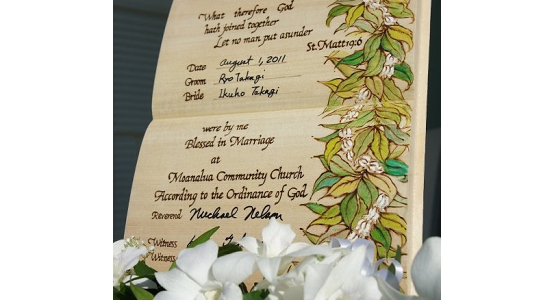 What therefore God
hath joined together
Let no man put asunder
St. Matt 19:6
Date august 1, 2011
Groom Ryo Takagi
Bride Ikuho Takagi
were by me
Blessed in Marriage
at
Moanalua Community Church
According to the Ordinance of God
Reverend Michael Nelson
Witness
Witness